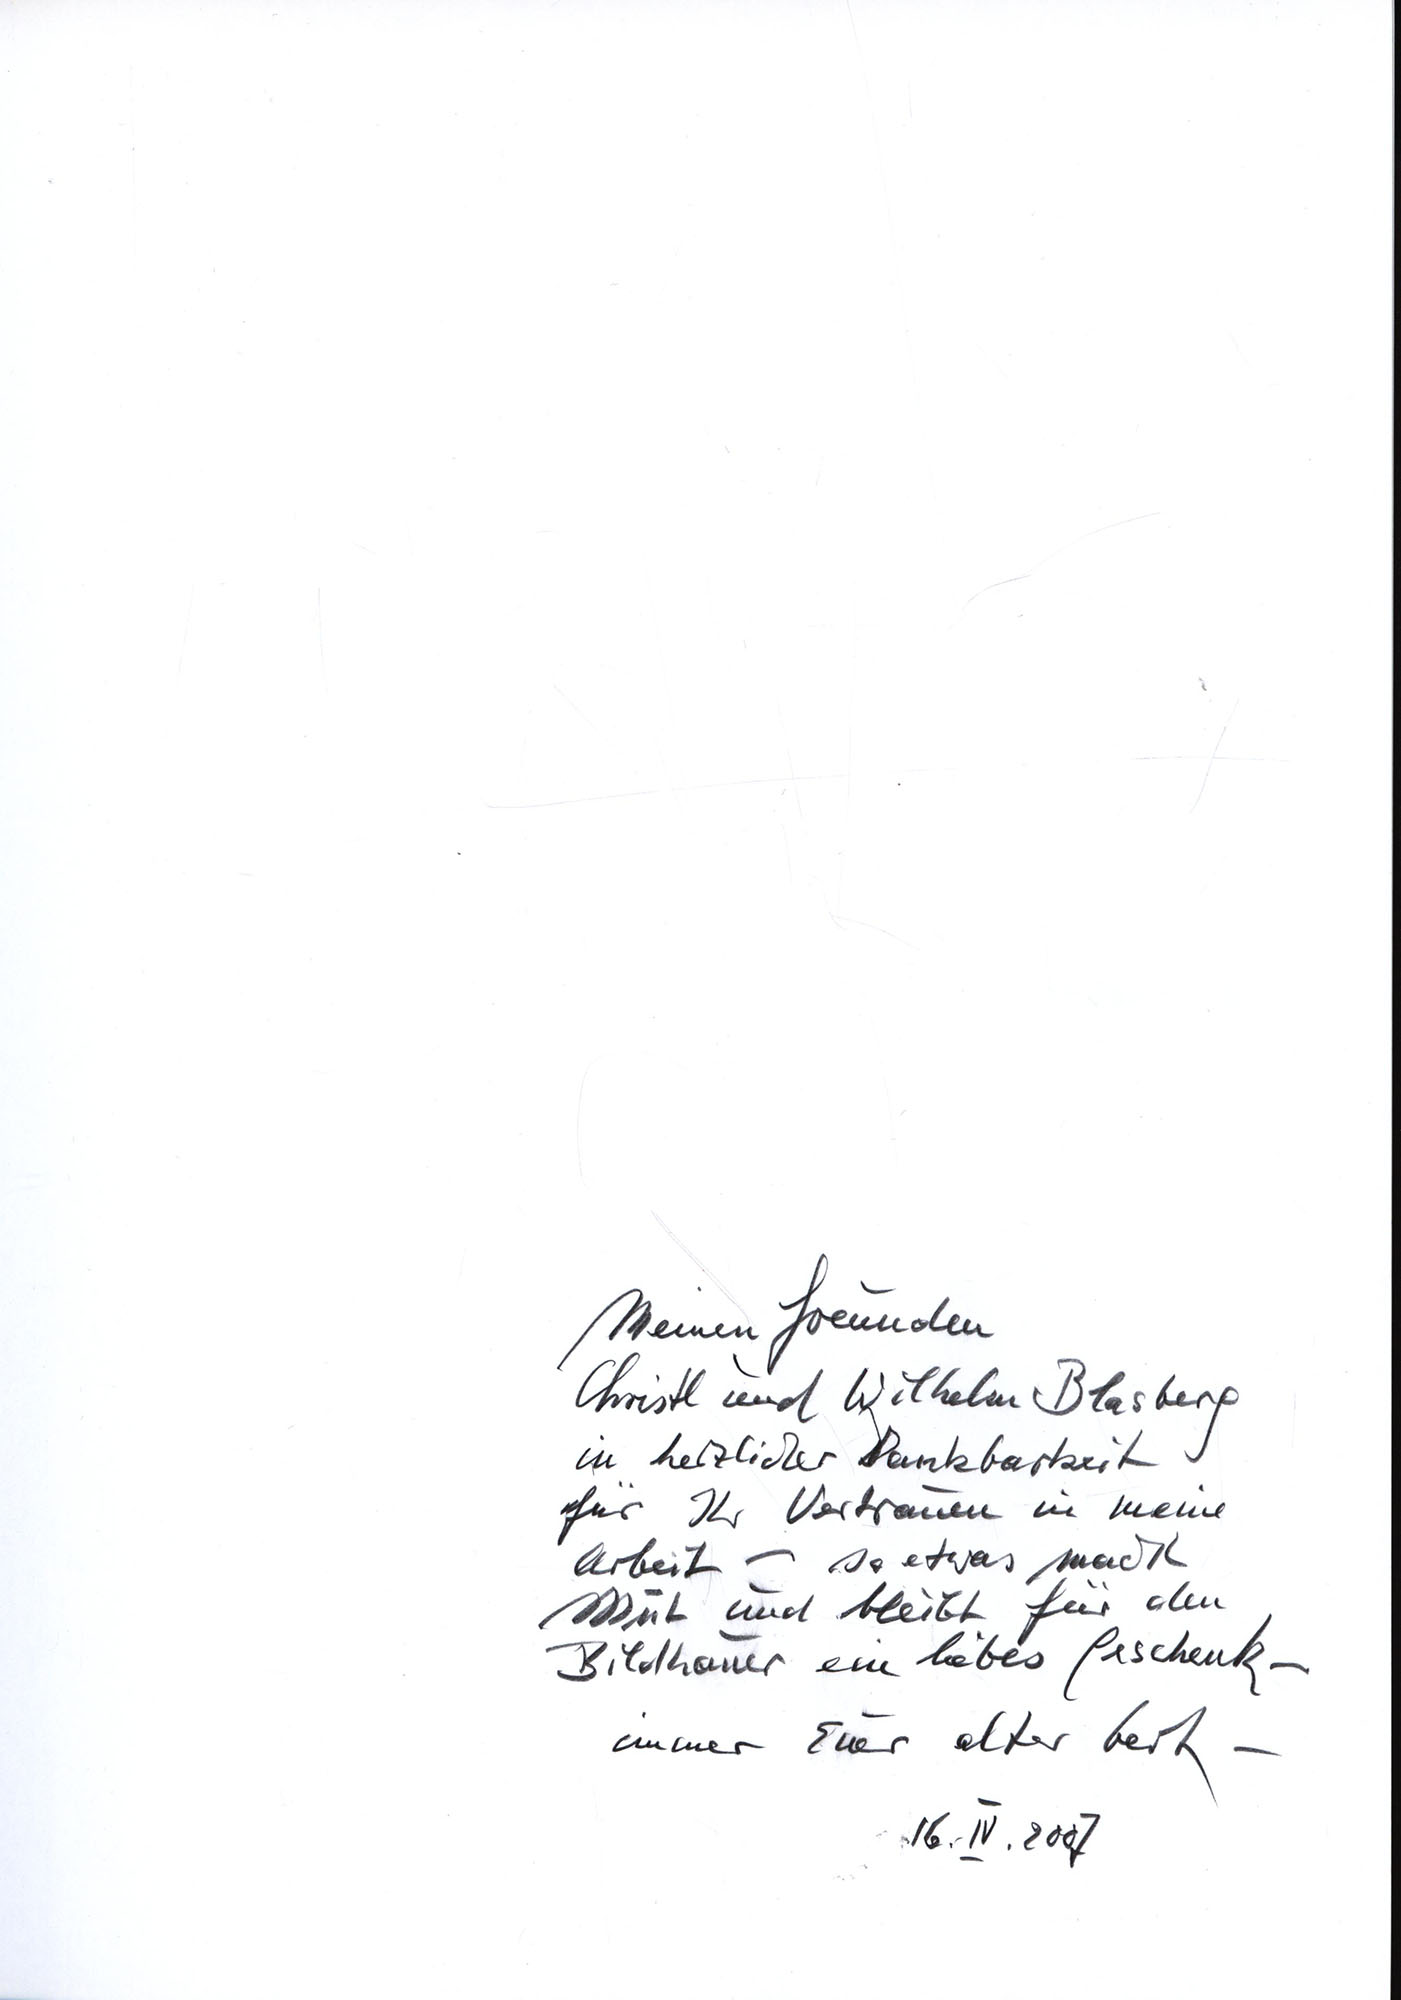 Meinen Freunden
Christl und Wilhelm Blasberg
in herzlicher Dankbarkeit
für Ihr Vertrauen in meine
Arbeit – so etwas macht
Mut und bleibt für den
Bildhauer ein liebes Geschenk –
immer Euer alter bert –
16. IV. 2007